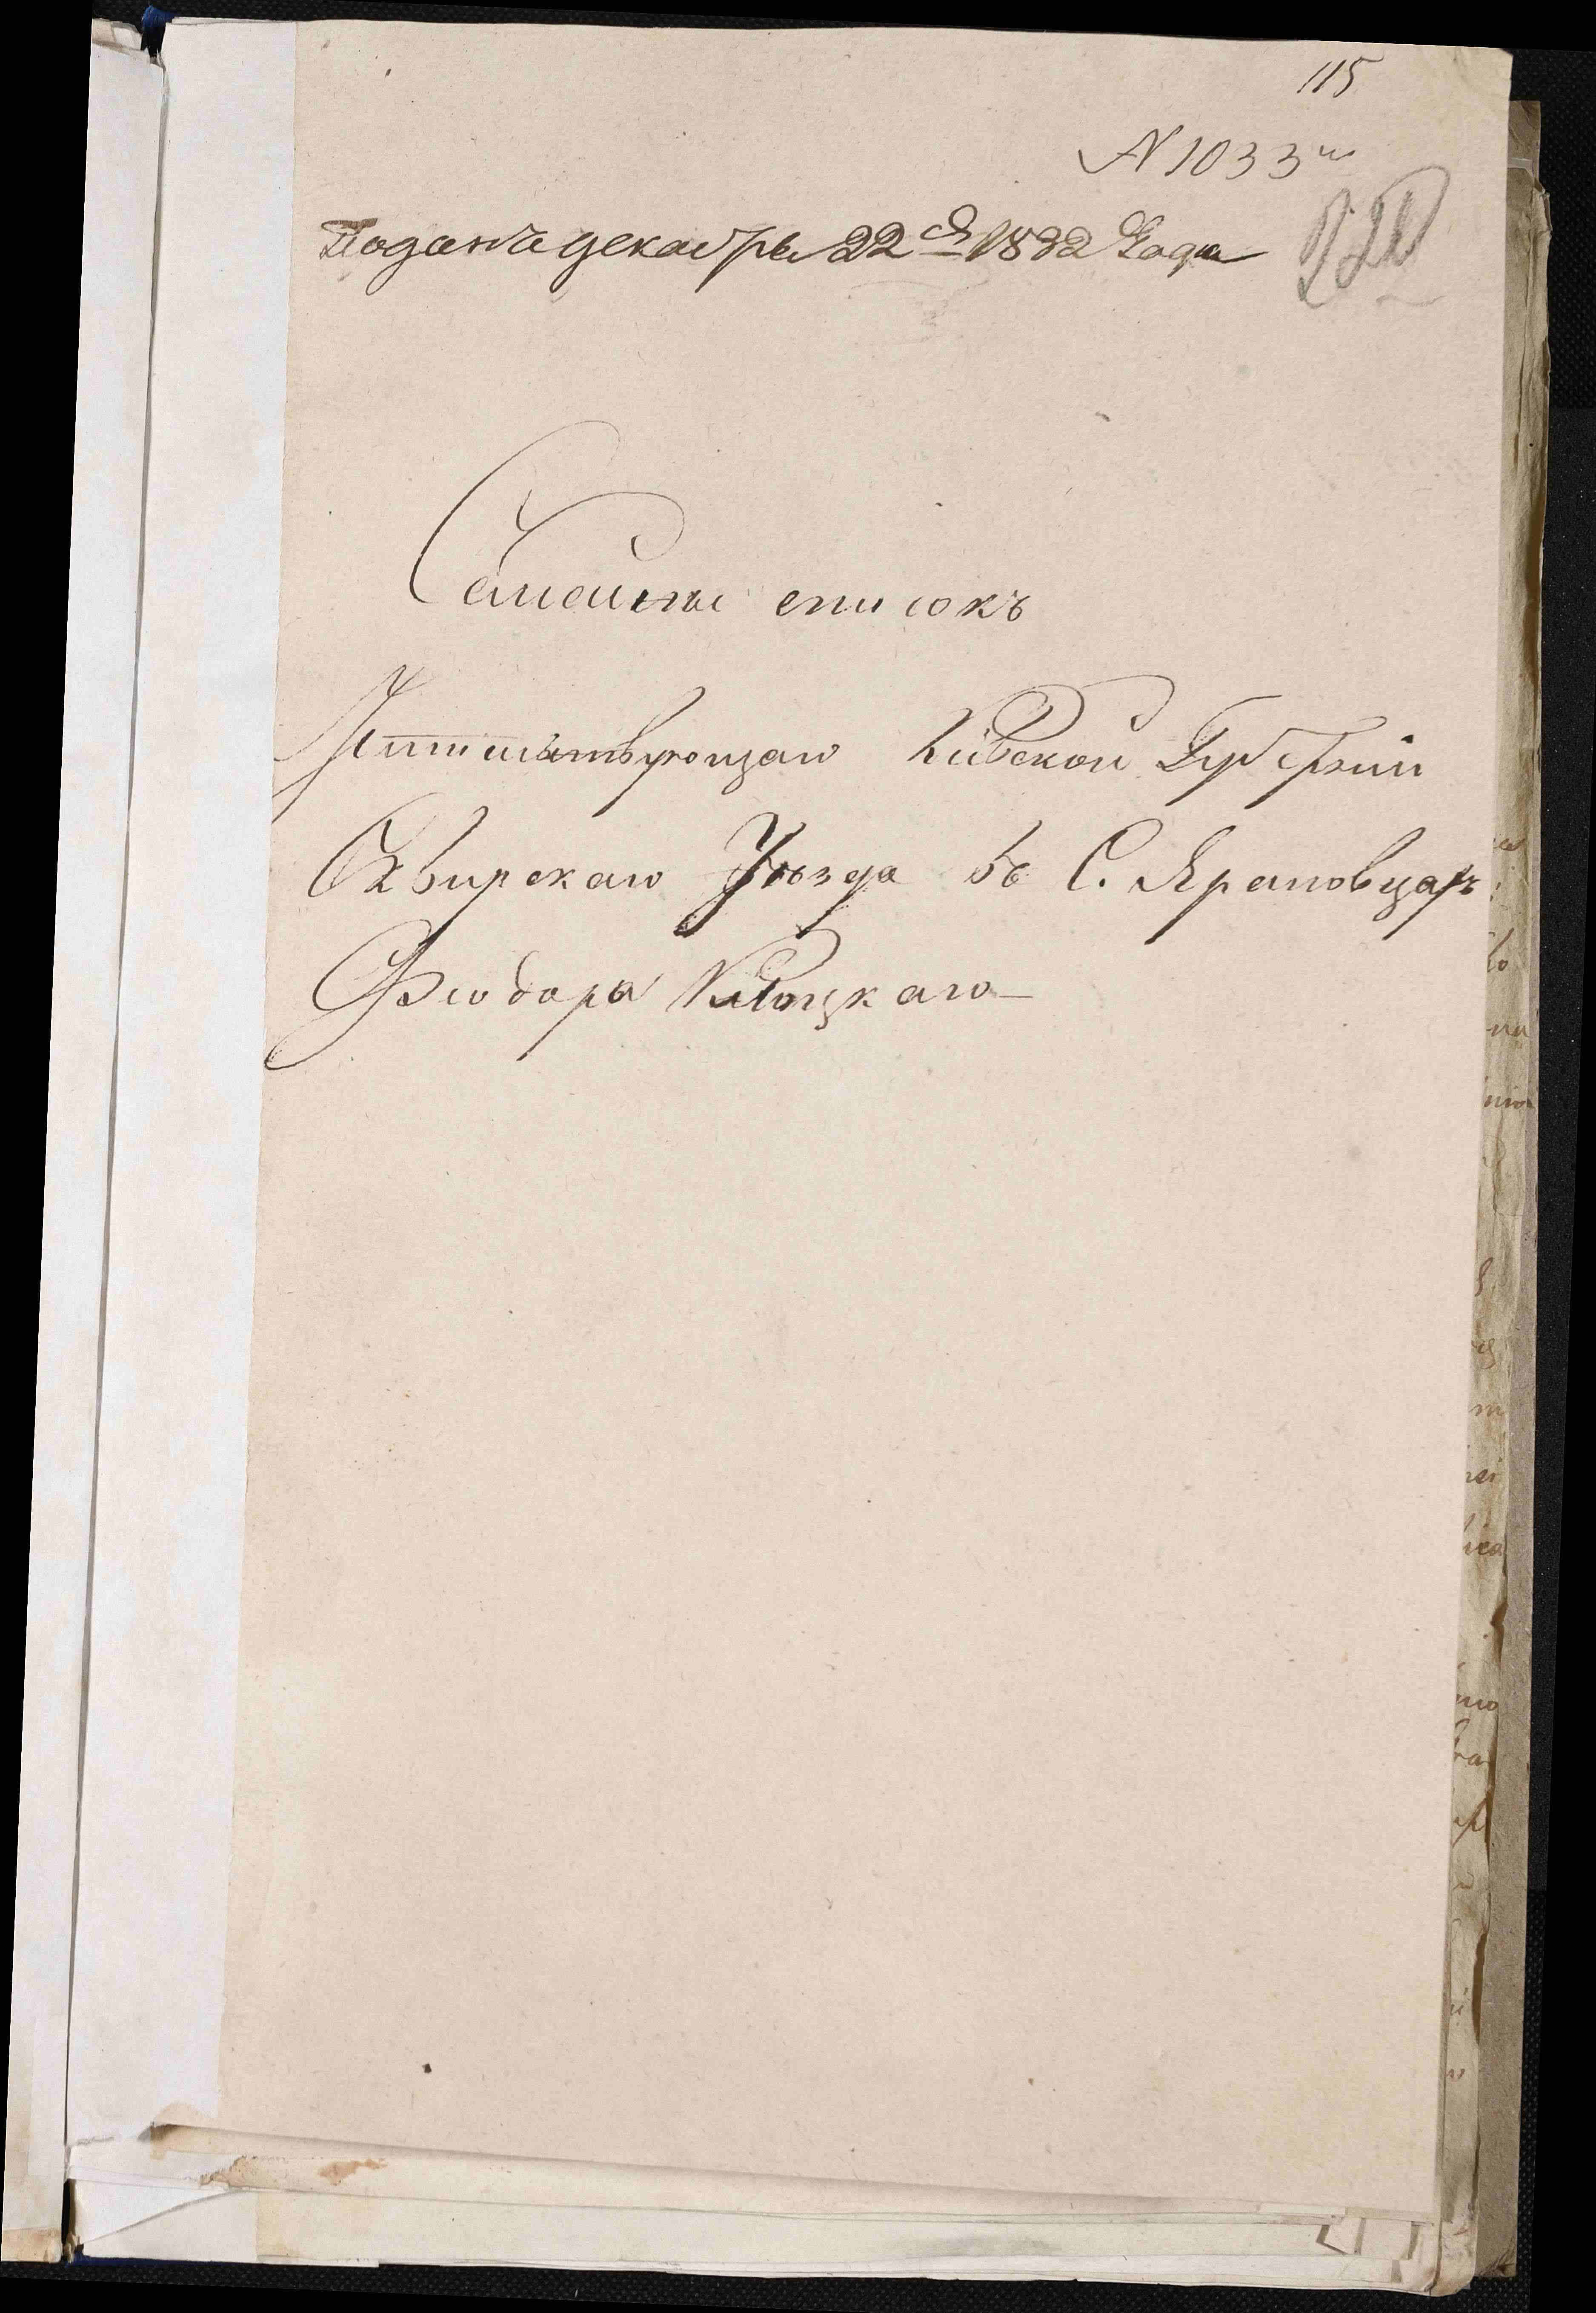 115
N 1033 ш
Поданъ декабря 22 дя 1832 года
Семейны списокъ
Жительствующаго Кіевской Губерніи
Сквирскаго Уѣзда въ С. Яроповцахъ
Феодора